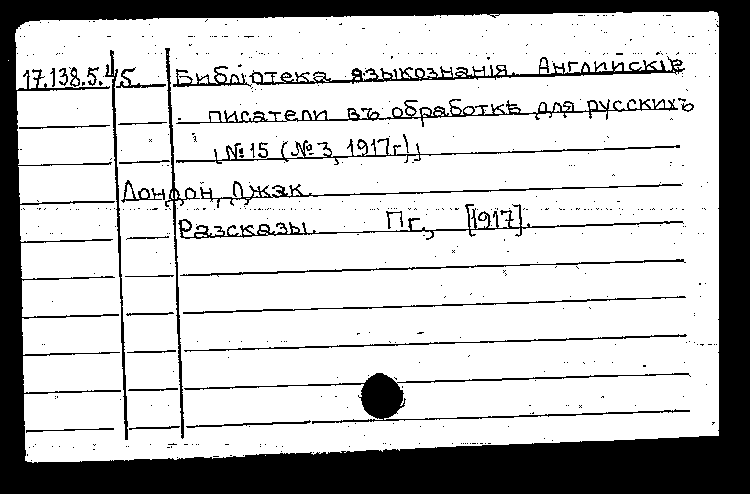 17.138.5.45. Библіотека языкознанія. Англійскіе
писатели въ обработкѣ для русскихъ
[№15 (№3, 1917г)]
Лондон, Джак.
Разсказы. Пг., [1917].